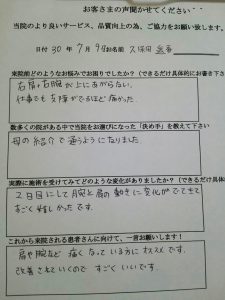 お客さまの声聞かせてください
当院のより良いサービス、品質向上の為、ご協力をお願い致します。
日付 30年 7月 9日 お名前 久保田
来院前どのようなお悩みでお困りでしたか?(できるだけ具体的にお書き下さ
右肩・右腕が上にあがらない。
仕事でも支障がでるほど痛かった。
数多くの院がある中で当院をお選びになった「決め手」を教えて下さい
母の紹介で通うようになりました。
実際に施術を受けてみてどのような変化がありましたか?(できるだけ具体的
2日目にして腕と肩の動きに変化がでてきて
すごく嬉しかったです。
これから来院される患者さんに向けて、一言お願いします!
肩や腕など痛くなっている方にオススメです。
改善されていくのですごくいいです。